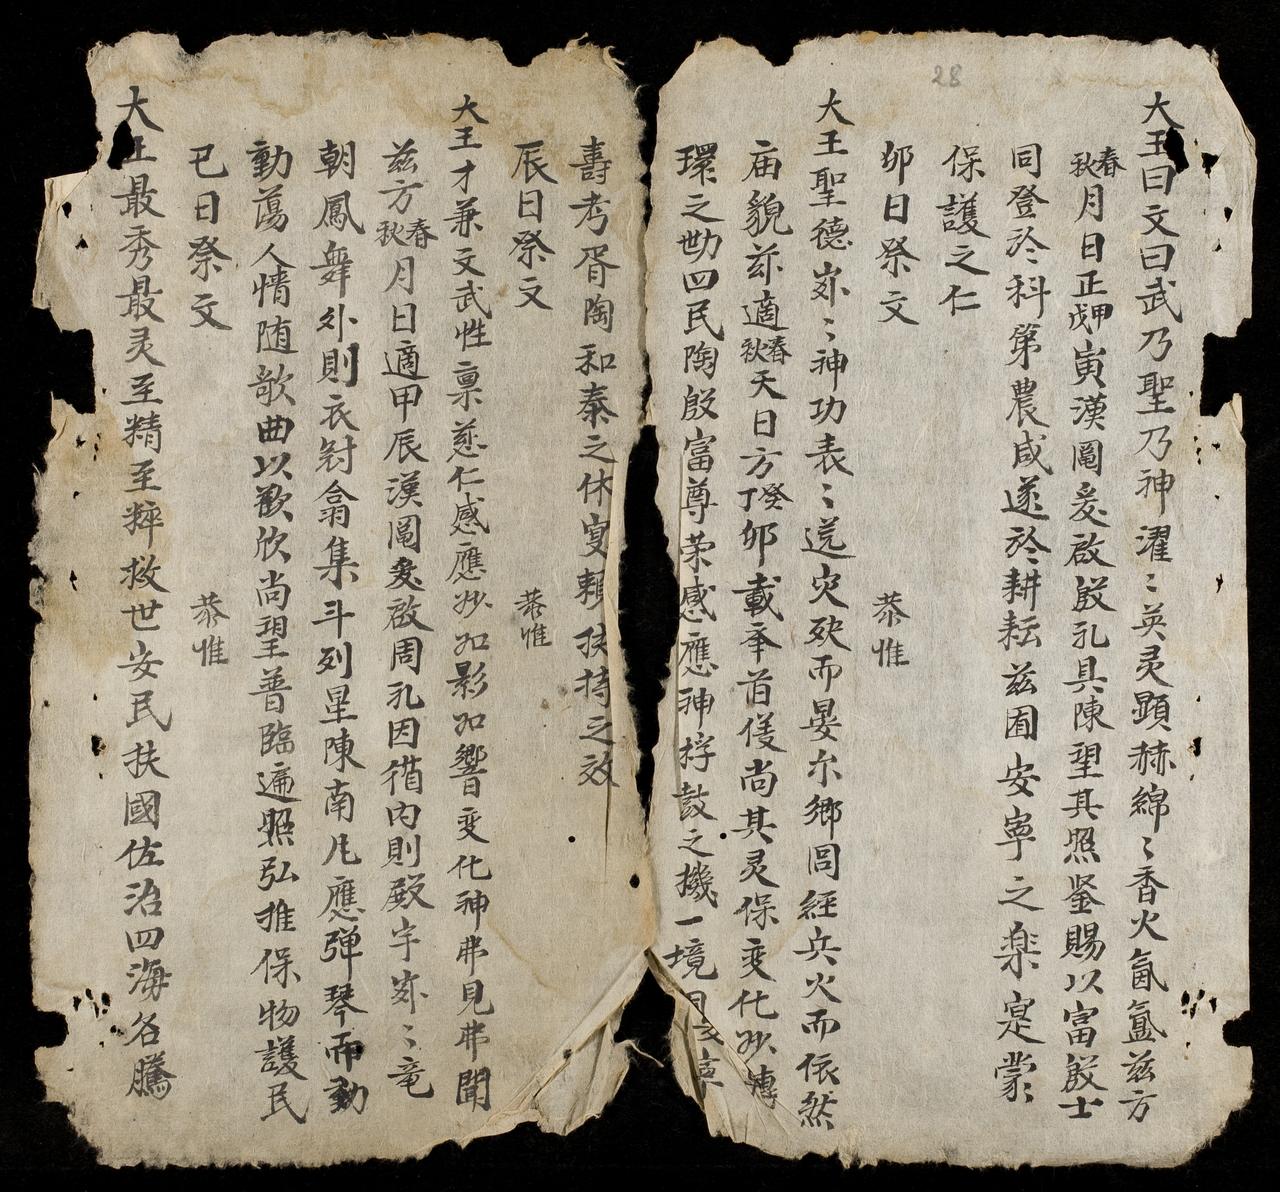 28
大王曰文曰武乃聖乃神濯〻英灵顕赫綿〻香火氤氳兹方
春秋月日正甲戊寅漢啚爰啟殷礼具陳望其照鉴賜以富殷士
同登於科第農咸遂於耕耘兹囿安寧之楽寔蒙
保護之仁
卯日祭文 恭惟
大王聖德〻神功表〻災殃而晏尔鄉閭經兵火而依然
庙貌兹適春秋天日方癸丁卯載奉首尚其灵保变化妙
環之四民陶殷富尊荣感應神桴鼓之機一境
壽考胥陶和泰之休寔賴扶持之效
辰日祭文 恭惟
大王才兼文武性禀慈仁感應妙如影如響变化神弗見弗聞
兹方春秋月日適甲辰漢啚爰啟周礼因循内則殿宇〻竜
朝鳳舞外則衣冠翕集斗列星陳南凡應弹琴而動
動蕩人情随歌曲以歡欣尚望普臨遍照弘推保物護民
巳日祭文 恭惟
大王最秀最灵至精至粹救世安民扶國佐治四海名騰